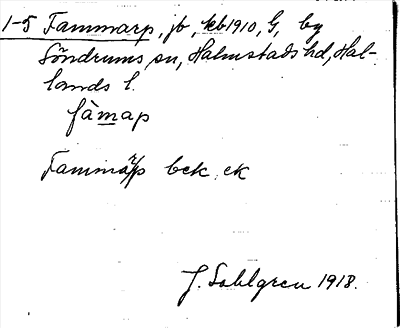 1-5 Fammarp, jb, kb 1910, G, by
Söndrums sn, Halmstads hd, Hal-
lands l.
fàmap
Fammarp bek. ek
J. Sahlgren 1918.